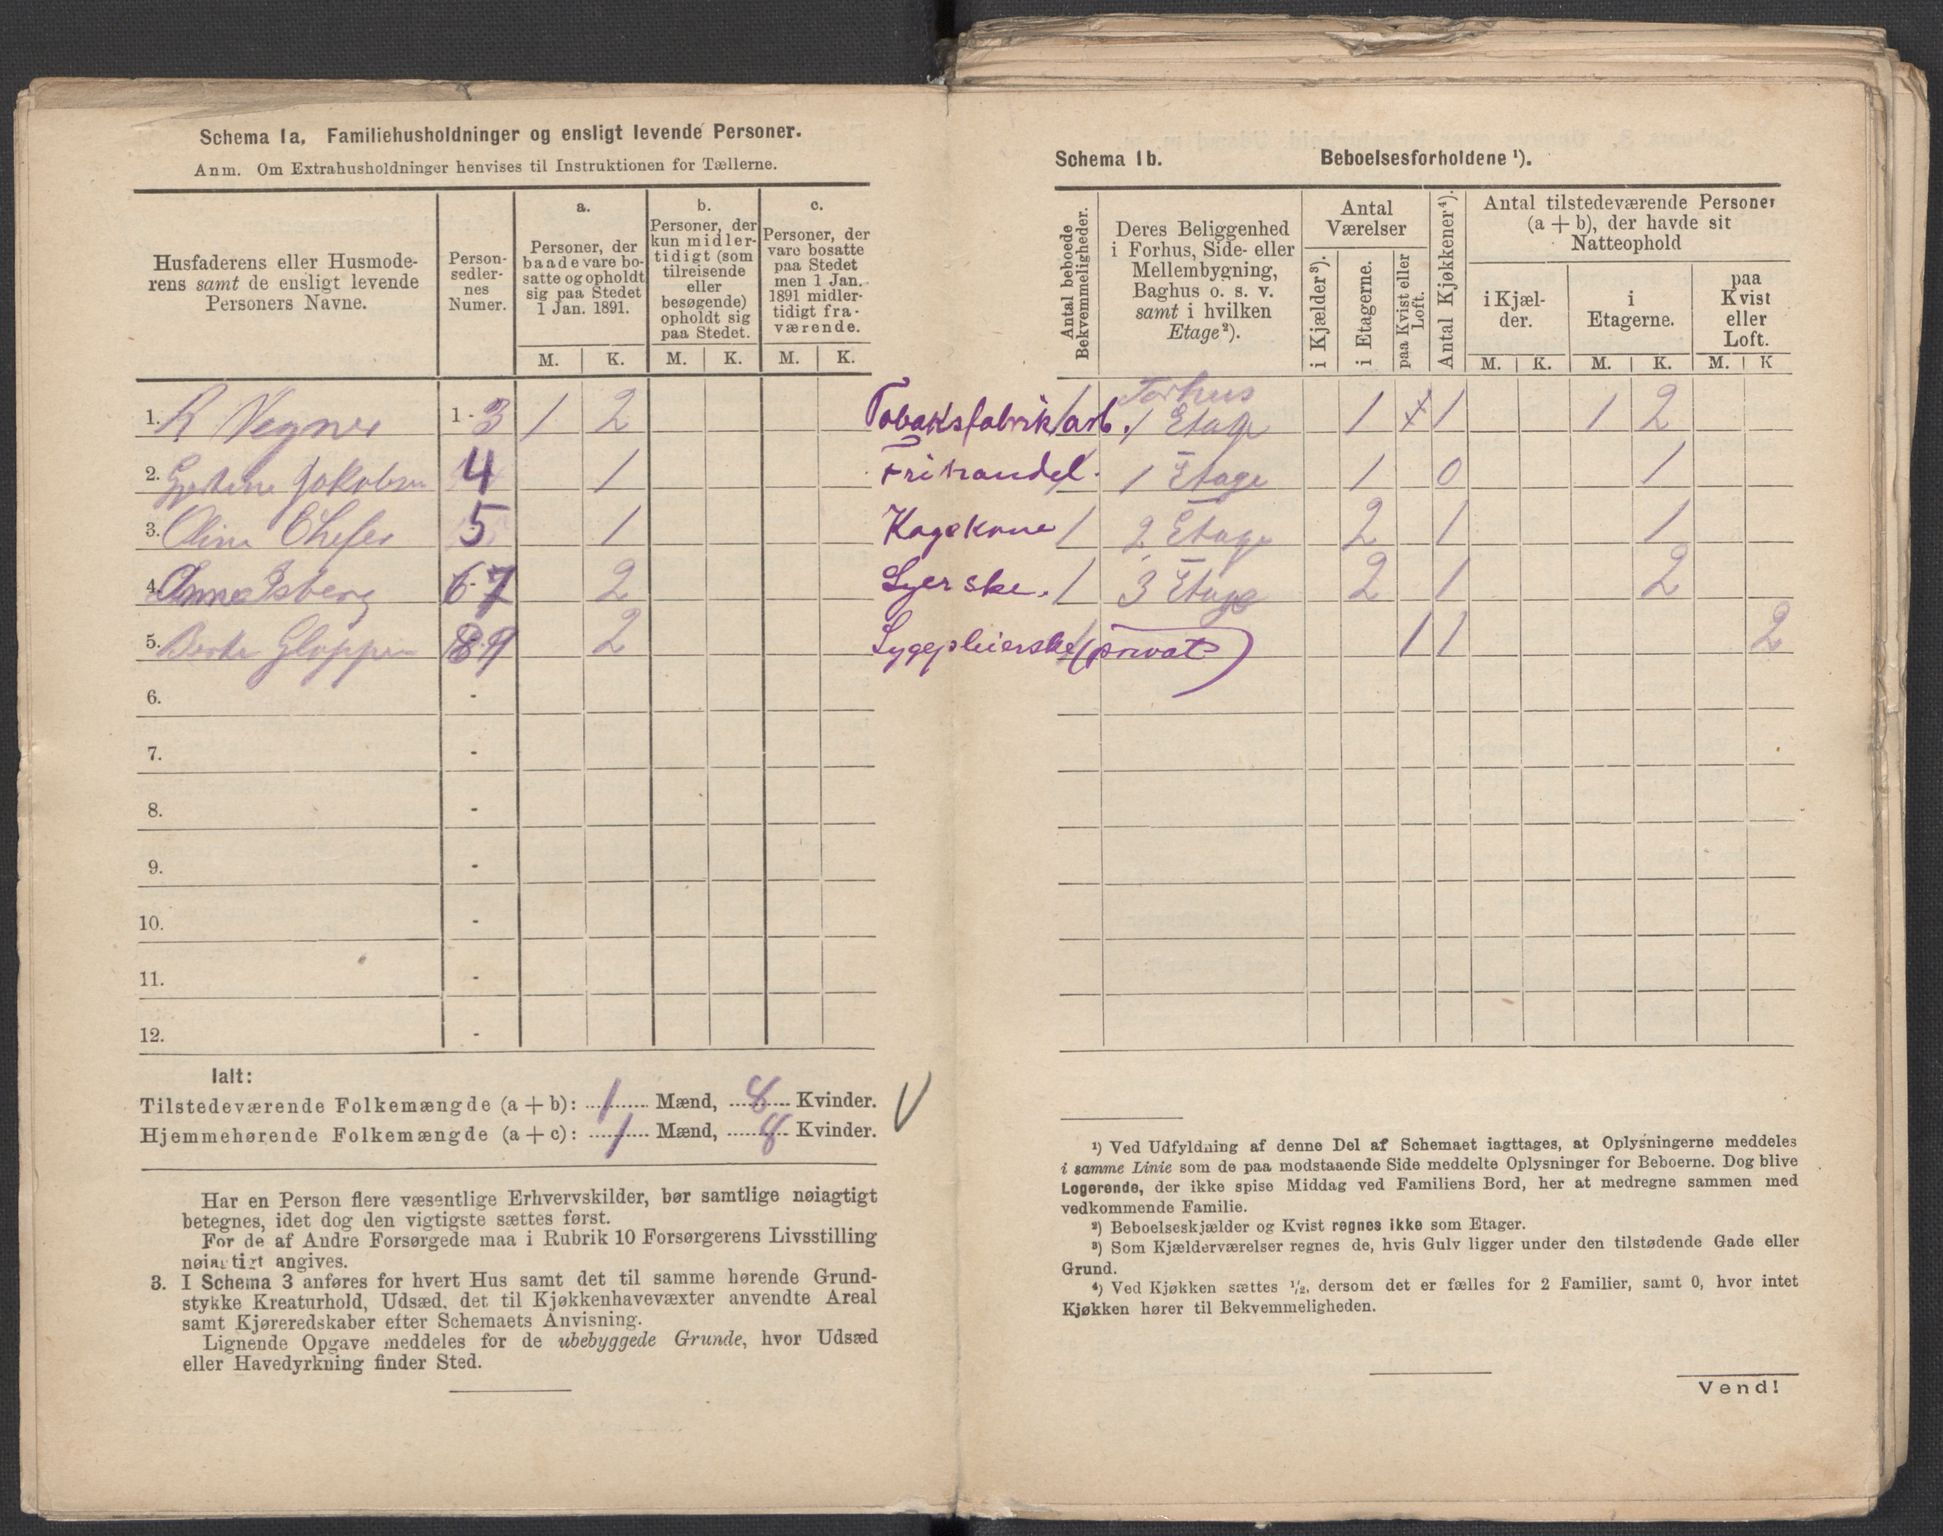 Schema 1a, Familiehusholdninger og ensligt levende Personer.
Anm. Om Extrahusholdninger henvises til Instruktionen for Tællerne.
Husfaderens eller Husmode-
rens samt de ensligt levende
Personers Navne.
Person-
sedler-
nes
Numer.
a.
Personer, der
baade vare bo-
satte og opholdt
sig paa Stedet
1 Jan. 1891.
b.
Personer, der
kun midler-
tidigt (som
tilreisende
eller
besøgende)
opholdt sig
paa Stedet.
c.
Personer, der
vare bosatte
paa Stedet
men 1 Jan.
1891 midler-
tidigt fra-
værende.
M. K. M. K. M. K.
1. R Vegner 1-3 1 2
2. Gjertine Jakobsen 4 1
3. Oline 5 1
4. Anne Isberg 6-7 2
5. Berte Gloppen 8-9 2
6. -
7. -
8. -
9. -
10. -
11. -
12. -
Ialt:
Tilstedeværende Folkemængde (a + b): 1 Mænd, 8 Kvinder.
Hjemmehørende Folkemængde (a + c): 1 Mænd, 8 Kvinder.
Har en Person flere væsentlige Erhvervskilder, bør samtlige nøiagtigt
betegnes, idet dog den vigtigste sættes først.
For de af Andre Forsørgede maa i Rubrik 10 Forsørgerens Livsstilling
nøiagtigt angives.
3. I Schema 3 anføres for hvert Hus samt det til samme hørende Grund-
stykke Kreaturhold, Udsæd, det til Kjøkkenhavevæxter anvendte Areal
samt Kjøreredskaber efter Schemaets Anvisning.
Lignende Opgave meddeles for de ubebyggede Grunde, hvor Udsæd
eller Havedyrkning finder Sted.
Schema 1b. Beboelsesforholdene ¹).
Antal beboede
Bekvemmeligheder.
Deres Beliggenhed
i Forhus, Side- eller
Mellembygning,
Baghus o. s. v.
samt i hvilken
Etage ²).
Antal
Værelser
i Kjælder ³).
i Etagerne.
paa Kvist eller
Loft.
Antal Kjøkkener ⁴).
Antal tilstedeværende Personer
(a + b), der havde sit
Natteophold
i Kjæl-
der.
i
Etagerne.
paa
Kvist
eller
Loft.
M. K. M. K. M. K
Forhus
Tobaksfabrikarb. 1 1 Etage 1 1 1 2
Frihandel. 1 1 Etage 1 0 1
Kagekone 1 2 Etage 2 1 1
Syerske. 1 3 Etage 2 1 2
Sygepleierske (privat) 1 1 1 2
¹) Ved Udfyldning af denne Del af Schemaet iagttages, at Oplysningerne meddeles
i samme Linie som de paa modstaaende Side meddelte Oplysninger for Beboerne. Dog blive
Logerende, der ikke spise Middag ved Familiens Bord, her at medregne sammen med
vedkommende Familie.
²) Beboelseskjælder og Kvist regnes ikke som Etager.
³) Som Kjælderværelser regnes de, hvis Gulv ligger under den tilstødende Gade eller
Grund.
⁴) Ved Kjøkken sættes ½, dersom det er fælles for 2 Familier, samt 0, hvor intet
Kjøkken hører til Bekvemmeligheden.
Vend!